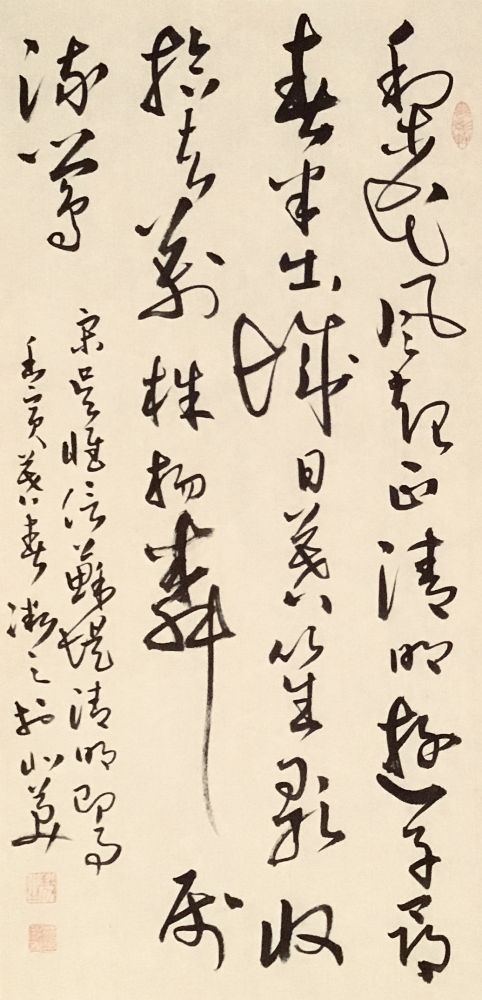 梨花風起正清明遊子尋
春半出城日暮笙歌收
拾去萬株楊柳屬
流鶯
宋吳惟信蘇堤清明即事
壬寅暮春之於北美